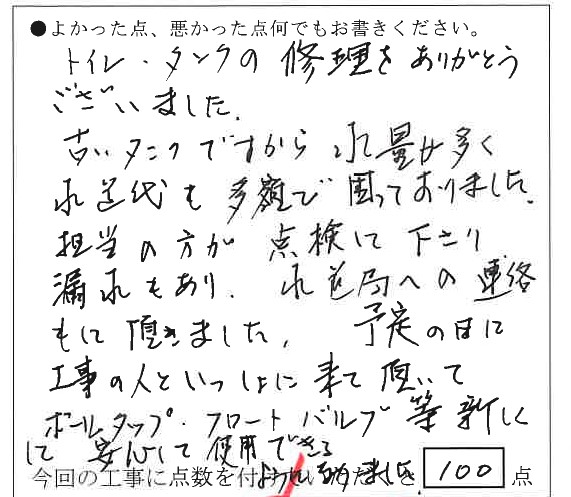 ●よかった点、悪かった点何でもお書きください。
トイレ・タンクの修理をありがとう
ございました。
古いタンクですから水量も多く
水道代も多額で困っておりました。
担当の方が点検して下さり
漏水もあり、水道局への連絡
もして頂きました。予定の日に
工事の人といっしょに来て頂いて
ボールタップ・フロートバルブ等新しく
して安心して使用できる
ように なりました。
今回の工事に点数を付け 100 点